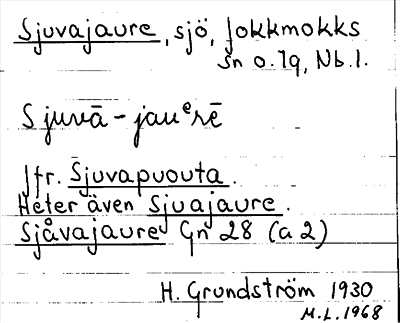 Sjuvajaure, sjö, Jokkmokks
sn o. lq, Nb. l.
Sjuvā-jauᵉrē
Jfr. Sjuvapuouta.
Heter även Sjuajaure.
Sjåvajaure Gn 28 (a 2)
H. Grundström 1930
M.L. 1968